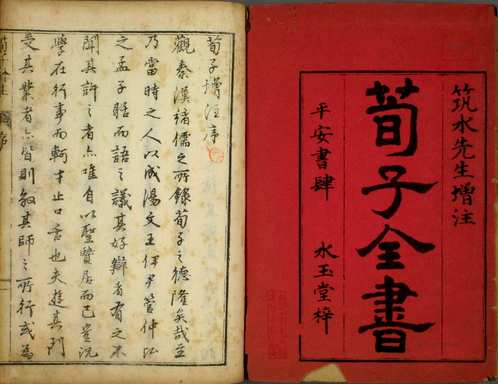 筑水先生增注
荀子全書
平安書肆 水玉堂梓
荀子增注序
觀秦漢諸儒之所錄荀子之德隆矣哉
乃當時之人以成湯文王伊尹管仲
之孟子 而語之議其好辯者有之不
聞其 之者亦唯自以聖賢居而已豈況
學在行事而軻才止口舌也夫遊其門
受其業者亦皆則效其師之所行或為